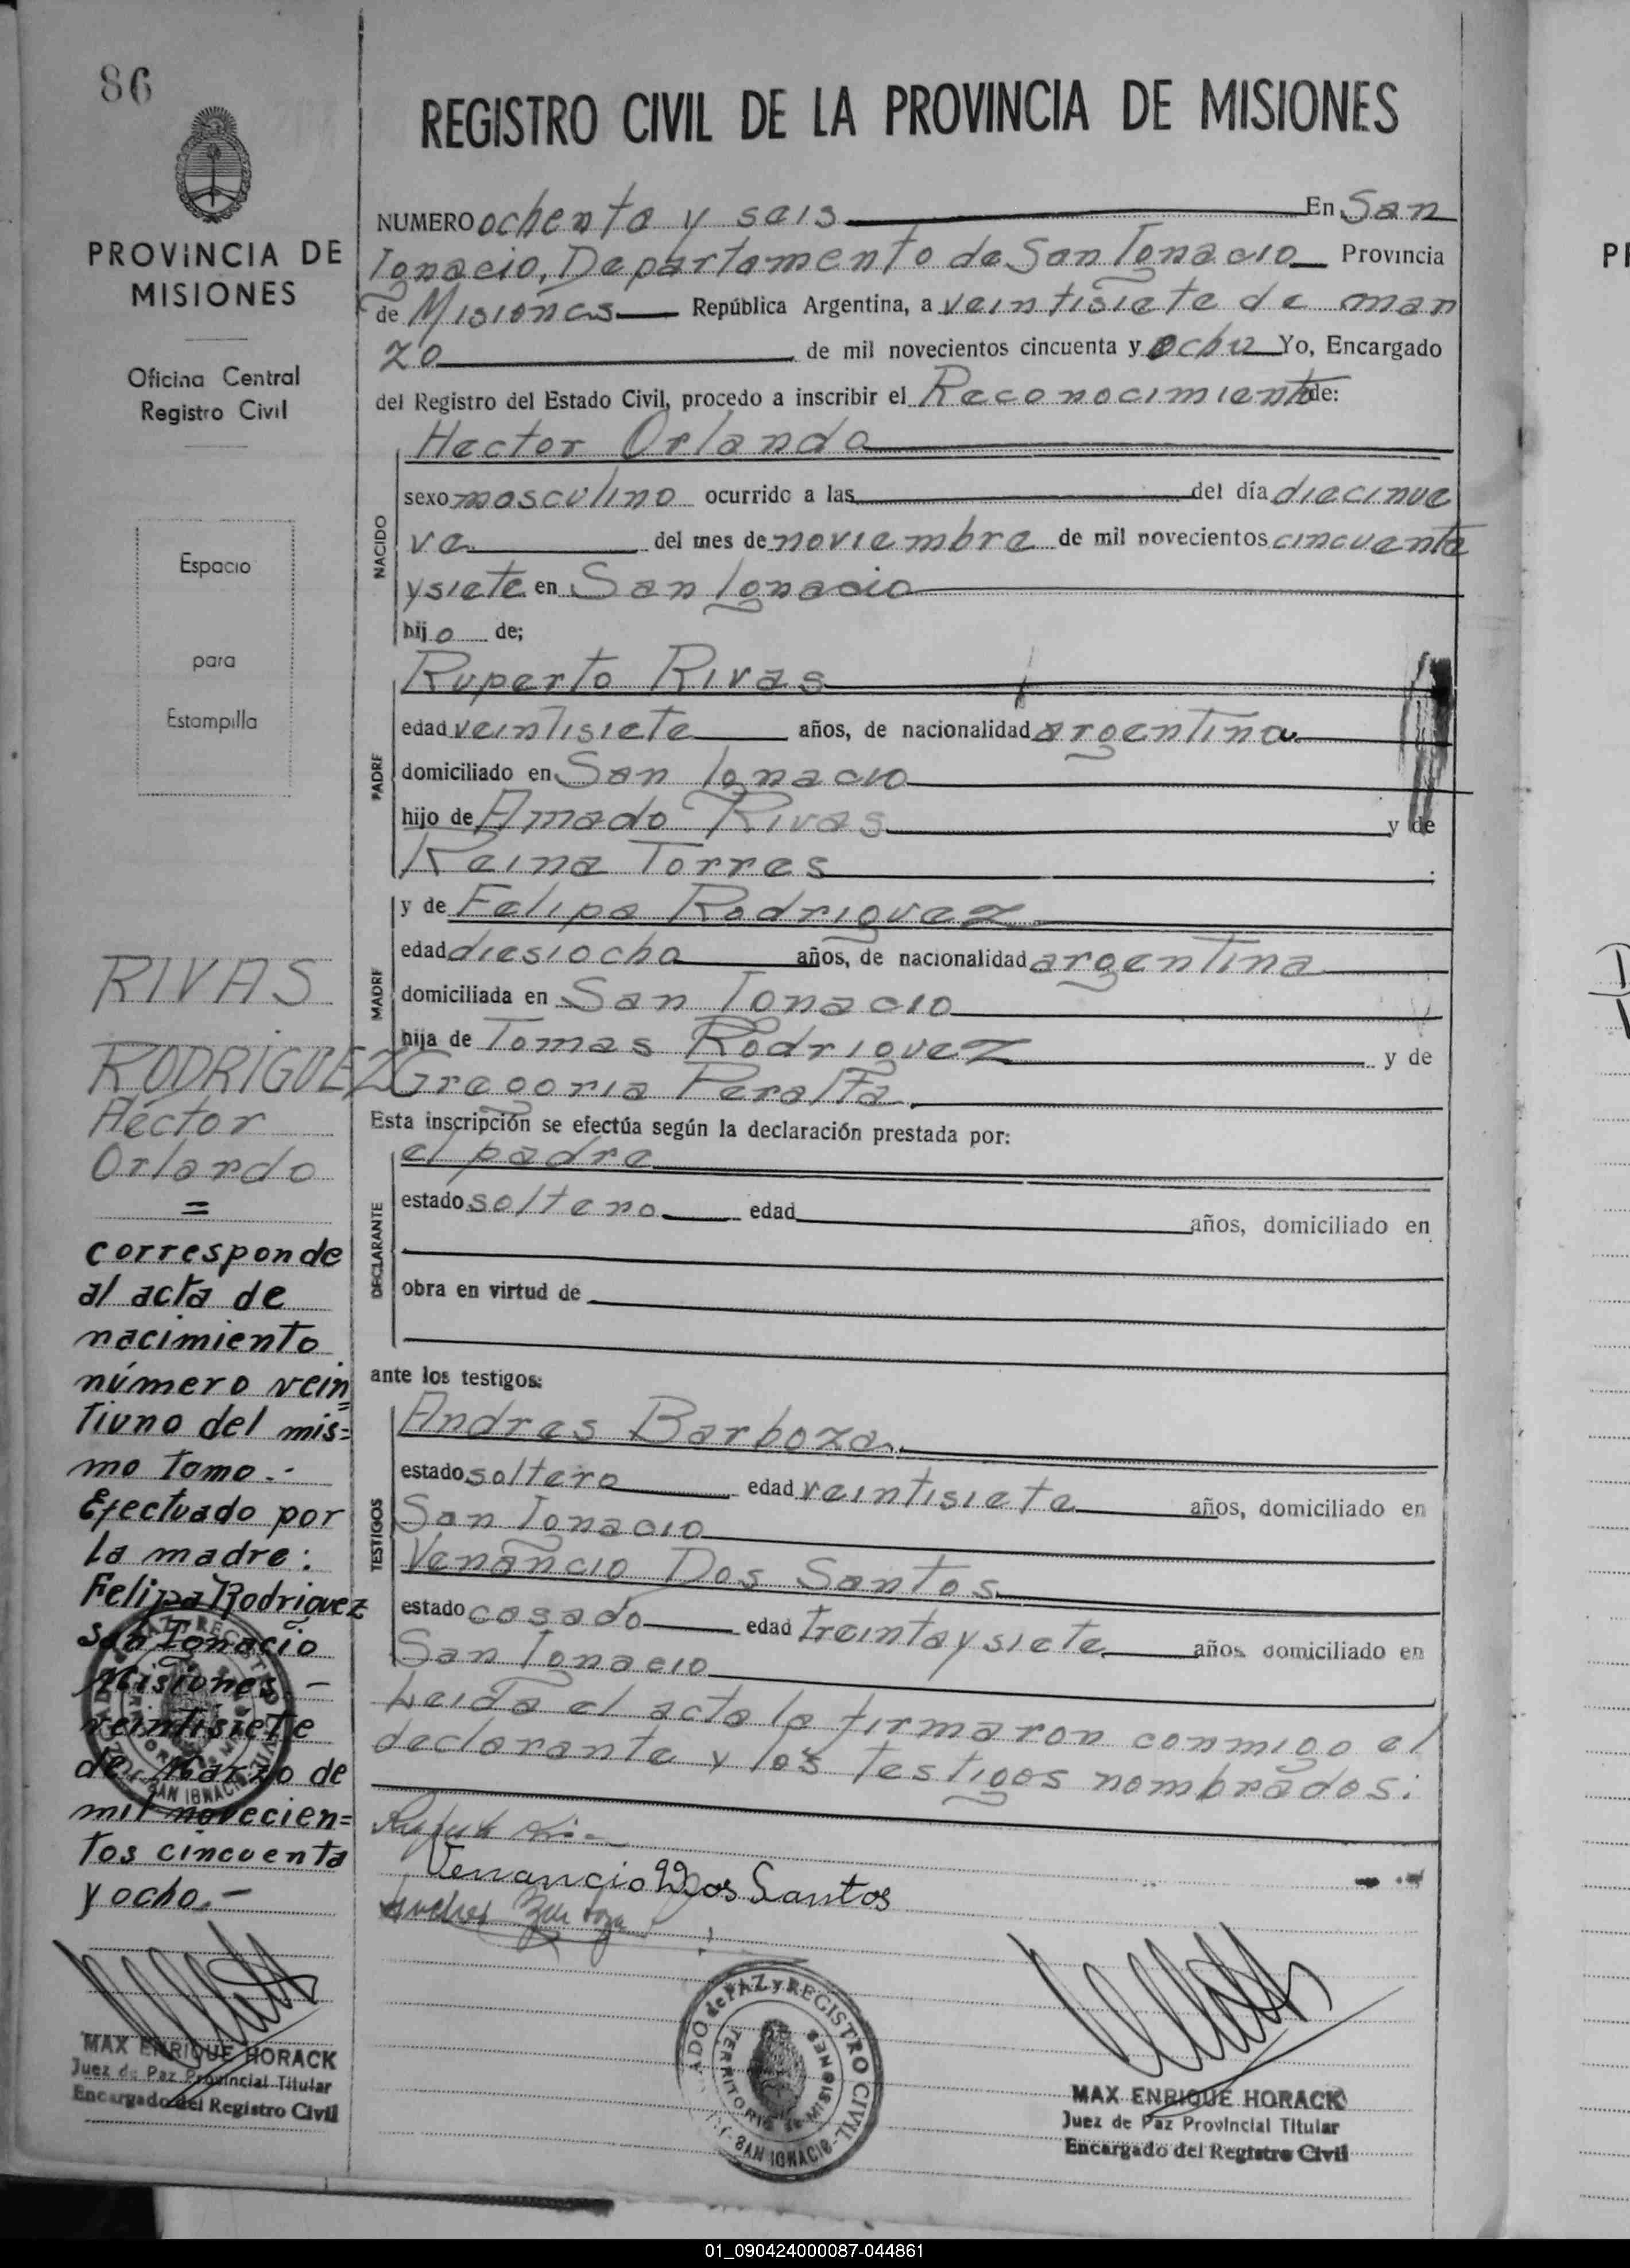 86
PROVINCIA DE
MISIONES
Oficina Central
Registro Civil
Espacio
para
Estampilla
RIVAS
RODRIGUEZ
Héctor
Orlando
=
corresponde
al acta de
nacimiento
número vein
tiuno del mis=
mo tomo.-
Efectuado por
la madre:
Felipa Rodriguez
San Ignacio
Misiones -
veintisiete
de Marzo de
mil novecien=
tos cincuenta
y ocho.-
MAX ENRIQUE HORACK
Juez de Paz Provincial Titular
Encargado del Registro Civil
REGISTRO CIVIL DE LA PROVINCIA DE MISIONES
NUMERO ochenta y seis En San
Ignacio, Departamento de San Ignacio Provincia
de Misiones República Argentina, a veintisiete de mar
zo de mil novecientos cincuenta y ocho Yo, Encargado
del Registro del Estado Civil, procedo a inscribir el Reconocimiento de:
NACIDO
Hector Orlando
sexo masculino ocurrido a las del día diecinue
ve del mes de noviembre de mil novecientos cincuenta
y siete en San Ignacio
hijo de;
PADRE
Ruperto Rivas
edad veintisiete años, de nacionalidad argentina
domiciliado en San Ignacio
hijo de Amado Rivas y de
Reina Torres
MADRE
y de Felipa Rodriguez
edad diesiocho años, de nacionalidad argentina
domiciliada en San Ignacio
hija de Tomas Rodriguez y de
Gregoria Peralta
Esta inscripción se efectúa según la declaración prestada por:
DECLARANTE
el padre
estado soltero edad años, domiciliado en
obra en virtud de
ante los testigos:
TESTIGOS
Andres Barboza
estado soltero edad veintisiete años, domiciliado en
San Ignacio
Venancio Dos Santos
estado casado edad treinta y siete años domiciliado en
San Ignacio
Leida el acta la firmaron conmigo el
declarante y los testigos nombrados:
Venancio Dos Santos
Andres Barboza
ADO de PAZ y REGISTRO CIVIL
TERRITORIO DE MISIONES
SAN IGNACIO
MAX ENRIQUE HORACK
Juez de Paz Provincial Titular
Encargado del Registro Civil
01_090424000087-044861